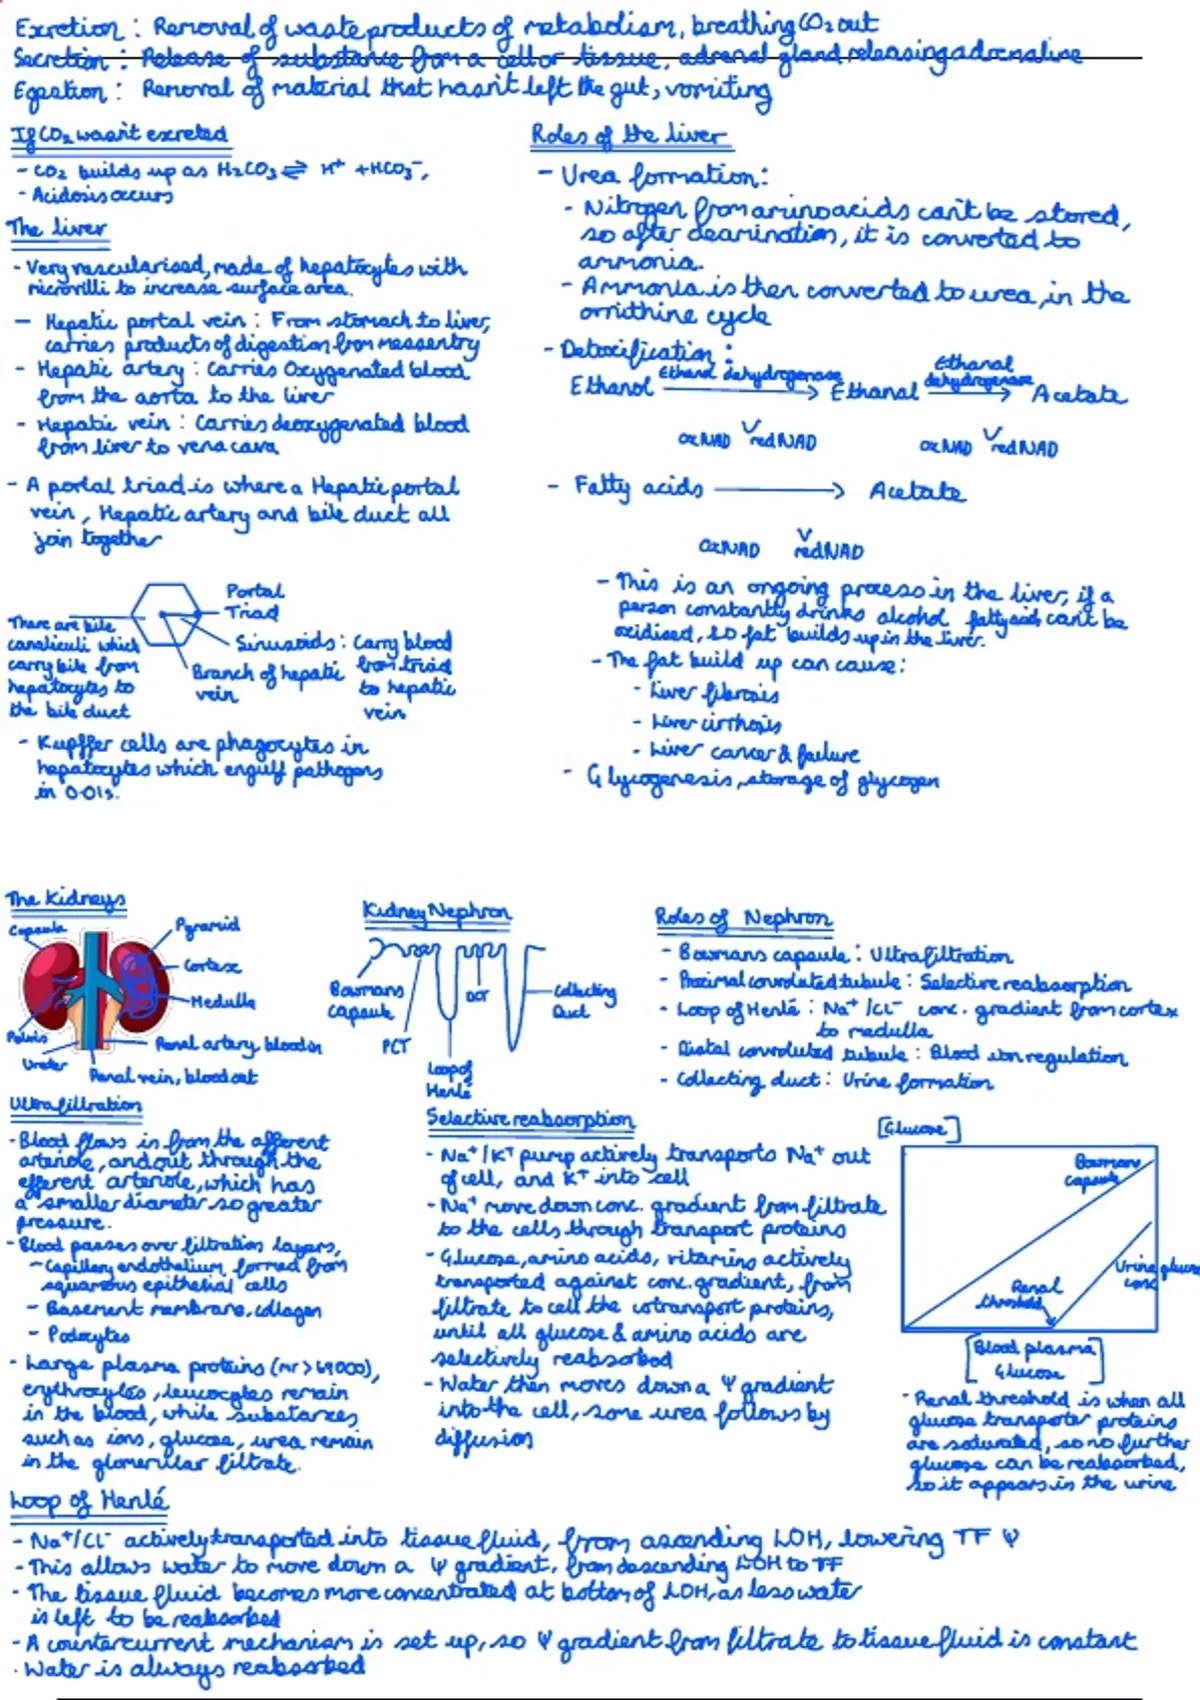 Excretion: Removal of waste products of metabolism, breathing CO2 out
Secretion: Release of substance from a cell or tissue, adrenal gland releasing adrenaline
Egestion: Removal of material that hasn't left the gut, vomiting
If CO2 wasn't excreted
- CO2 builds up as H2CO3 ⇌ H+ + HCO3-,
- Acidosis occurs
The liver
- Very vascularised, made of hepatocytes with
microvilli to increase surface area.
- Hepatic portal vein: From stomach to liver,
carries products of digestion from messentry
- Hepatic artery: Carries Oxygenated blood
from the aorta to the liver
- Hepatic vein: Carries deoxygenated blood
from liver to vena cava
- A portal triad is where a Hepatic portal
vein, Hepatic artery and bile duct all
join together
Portal
Triad
There are bile
canaliculi which
carry bile from
hepatocytes to
the bile duct
Sinusoids: Carry blood
from triad
to hepatic
vein
Branch of hepatic
vein
- Kupffer cells are phagocytes in
hepatocytes which engulf pathogens
in 0.01s.
Roles of the liver
- Urea formation:
- Nitrogen from amino acids can't be stored,
so after deamination, it is converted to
ammonia.
- Ammonia is then converted to urea, in the
ornithine cycle
- Detoxification:
Ethanol Ethanol dehydrogenase → Ethanal Ethanal dehydrogenase → Acetate
oxNAD redNAD oxNAD redNAD
- Fatty acids → Acetate
oxNAD redNAD
- This is an ongoing process in the liver, if a
person constantly drinks alcohol fatty acids can't be
oxidised, so fat builds up in the liver.
- The fat build up can cause:
- Liver fibrosis
- Liver cirrhosis
- Liver cancer & failure
- Glycogenesis, storage of glycogen
The Kidneys
Capsule
Pyramid
Cortex
Medulla
Pelvis
Renal artery, blood in
Ureter
Renal vein, blood out
Kidney Nephron
Bowmans
capsule
PCT
DCT
Collecting
Duct
Loop of
Henlé
Roles of Nephron
- Bowmans capsule: Ultrafiltration
- Proximal convoluted tubule: Selective reabsorption
- Loop of Henlé: Na+/Cl- conc. gradient from cortex
to medulla
- Distal convoluted tubule: Blood ion regulation
- Collecting duct: Urine formation
Ultrafiltration
- Blood flows in from the afferent
arteriole, and out through the
efferent arteriole, which has
a smaller diameter so greater
pressure.
- Blood passes over filtration layers,
- Capillary endothelium, formed from
squamous epithelial cells
- Basement membrane, collagen
- Podocytes
- Large plasma proteins (mr > 69000),
erythrocytes, leucocytes remain
in the blood, while substances
such as ions, glucose, urea remain
in the glomerular filtrate.
Selective reabsorption
- Na+/K+ pump actively transports Na+ out
of cell, and K+ into cell
- Na+ move down conc. gradient from filtrate
to the cells through transport proteins
- Glucose, amino acids, vitamins actively
transported against conc. gradient, from
filtrate to cell the cotransport proteins,
until all glucose & amino acids are
selectively reabsorbed
- Water then moves down a Ψ gradient
into the cell, some urea follows by
diffusion
[Glucose]
Bowmans
capsule
Urine glucose
conc
Renal
threshold
[Blood plasma
Glucose]
- Renal threshold is when all
glucose transporter proteins
are saturated, so no further
glucose can be reabsorbed,
so it appears in the urine
Loop of Henlé
- Na+/Cl- actively transported into tissue fluid, from ascending LOH, lowering TF Ψ
- This allows water to move down a Ψ gradient, from descending LOH to TF
- The tissue fluid becomes more concentrated at bottom of LOH, as less water
is left to be reabsorbed
- A countercurrent mechanism is set up, so Ψ gradient from filtrate to tissue fluid is constant
- Water is always reabsorbed